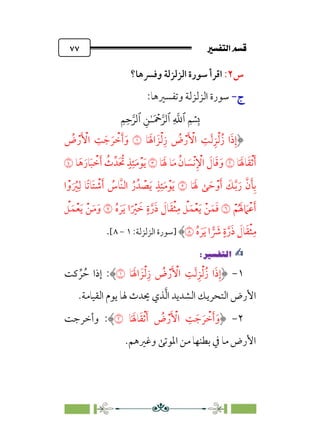 قسم التفسير
٧٧
س٢: اقرأ سورة الزلزلة وفسرها؟
ج- سورة الزلزلة وتفسيرها:
بِسْمِ ٱللَّهِ ٱلرَّحْمَـٰنِ ٱلرَّحِيمِ
﴿إِذَا زُلْزِلَتِ ٱلْأَرْضُ زِلْزَالَهَا ١ وَأَخْرَجَتِ ٱلْأَرْضُ
أَثْقَالَهَا ٢ وَقَالَ ٱلْإِنسَـٰنُ مَا لَهَا ٣ يَوْمَئِذٍ تُحَدِّثُ أَخْبَارَهَا ٤
بِأَنَّ رَبَّكَ أَوْحَىٰ لَهَا ٥ يَوْمَئِذٍ يَصْدُرُ ٱلنَّاسُ أَشْتَاتًا لِّيُرَوْا
أَعْمَـٰلَهُمْ ٦ فَمَن يَعْمَلْ مِثْقَالَ ذَرَّةٍ خَيْرًا يَرَهُ ٧ وَمَن يَعْمَلْ
مِثْقَالَ ذَرَّةٍ شَرًّا يَرَهُ ٨﴾ [سورة الزلزلة: ١ - ٨].
التفسير:
١- ﴿إِذَا زُلْزِلَتِ ٱلْأَرْضُ زِلْزَالَهَا ١﴾: إذا حُرِّكت
الأرض التحريك الشديد الَّذي يحدث لها يوم القيامة.
٢- ﴿وَأَخْرَجَتِ ٱلْأَرْضُ أَثْقَالَهَا ٢﴾: وأخرجت
الأرض ما في بطنها من الموتىٰ وغيرهم.